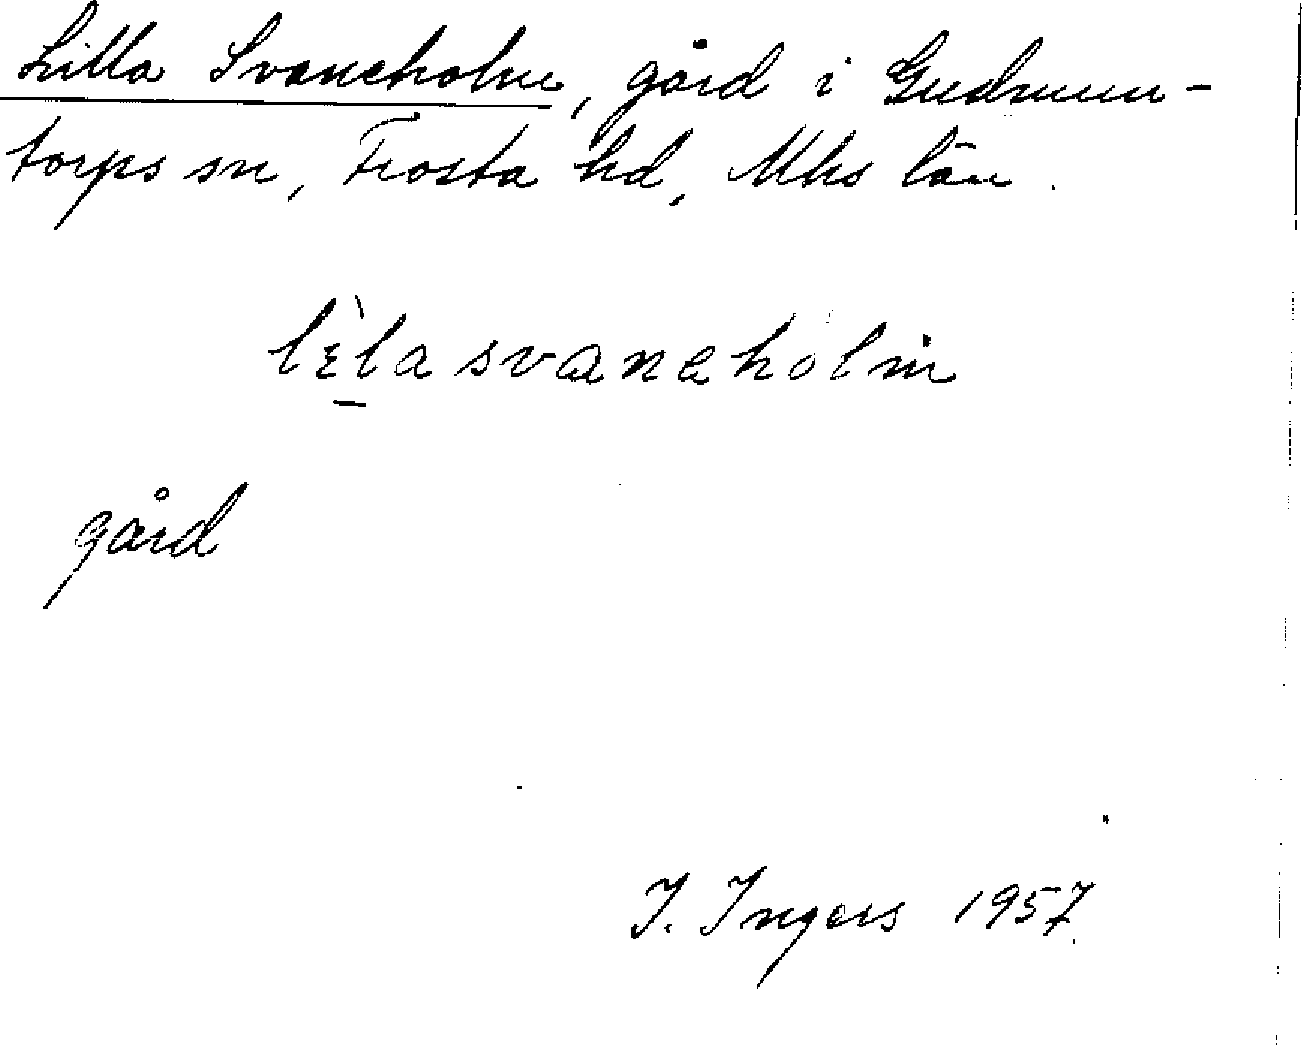 Lilla Svaneholm, gård i Gudmun-
torps sn, Frosta hd, Mhs län.
lìla svaneholm
gård
I. Ingers 1957.